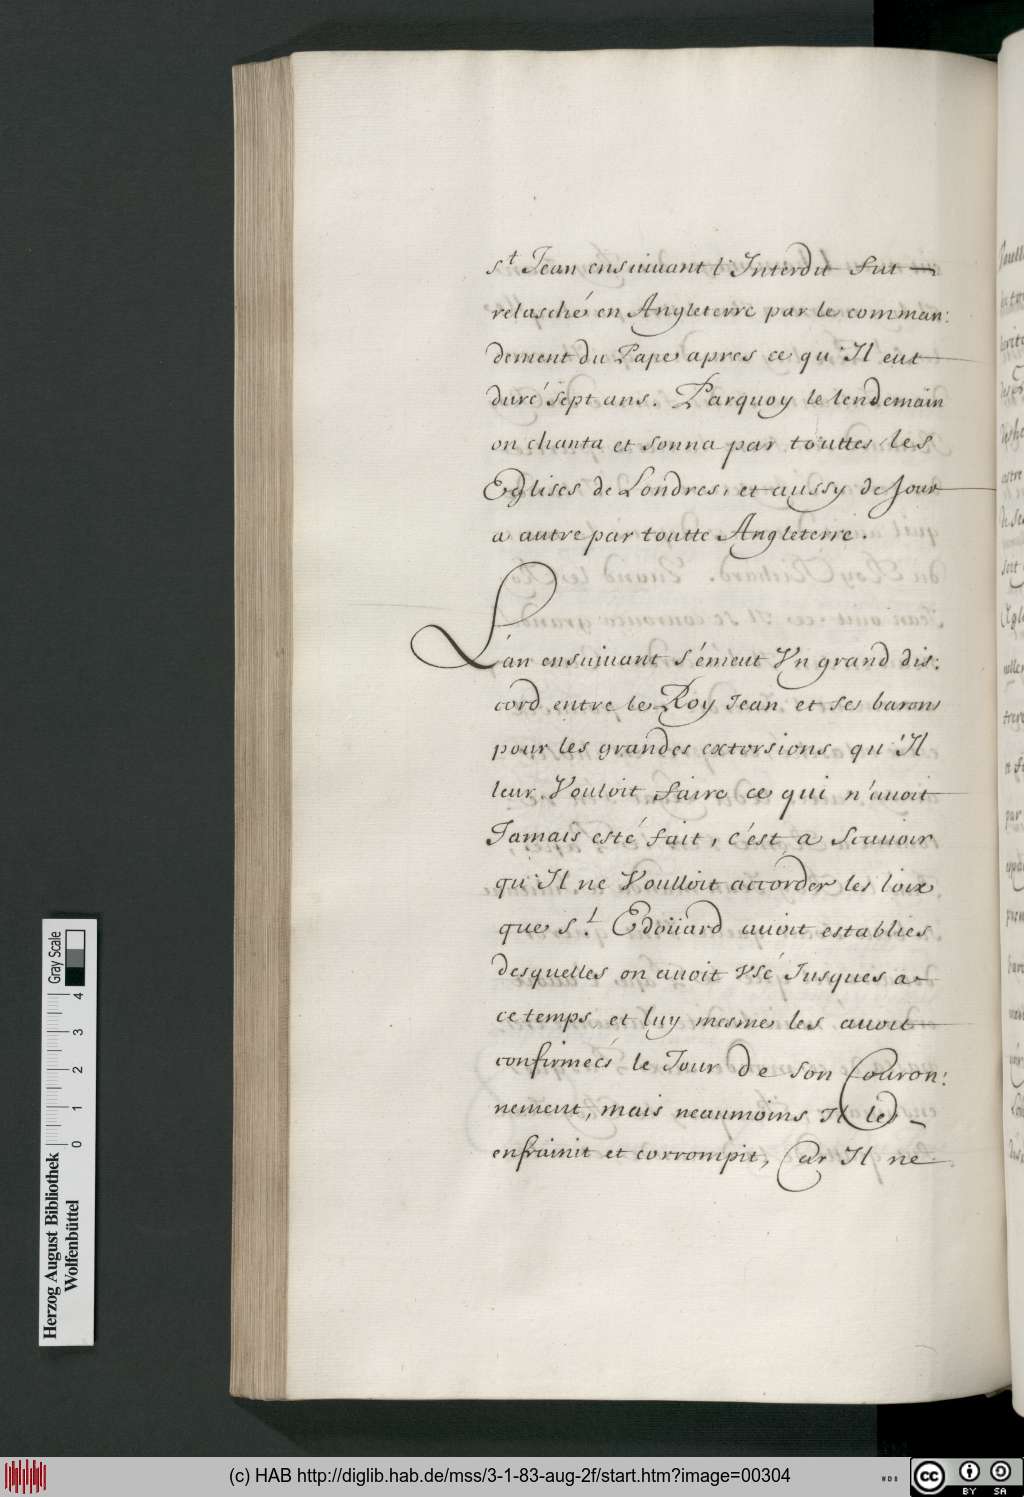 s.t Jean ensuiuant l'Interdit fut —
relasché en Angleterre par le comman:
dement du Pape apres ce qu'Il eut
duré sept ans. Parquoy le lendemain
on chanta et sonna par touttes les
Eglises de Londres, et aussy de Jour
a autre par toutte Angleterre.
L'an ensuiuant s'émeut Vn grand dis:
cord entre le Roy Jean et ses barons
pour les grandes extorsions qu'Il
leur Vouloit faire ce qui n'auoit
Jamais esté fait, c'est a Scauoir
qu'Il ne Voulloit accorder les loix
que S.t Edoüard auoit establies
desquelles on auoit Vsé Jusques a
ce temps et luy mesme les auoit
confirmeés le Jour de son Couron:
nement, mais neaumoins Il le -
enfrainit et corrompit, Car Il ne
Herzog August Bibliothek
Wolfenbüttel
0 1 2 3 4
Gray Scale
(c) HAB http://diglib.hab.de/mss/3-1-83-aug-2f/start.htm?image=00304
WDB
cc BY SA